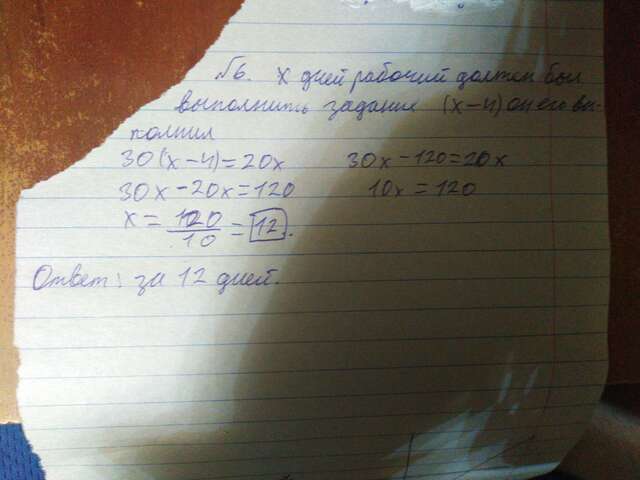 №6. х дней рабочий должен был
выполнить задание (х-4) он его вы-
полнил
30(х-4)=20х 30х-120=20х
30х-20х=120 10х=120
х=120/10=12.
Ответ: за 12 дней.